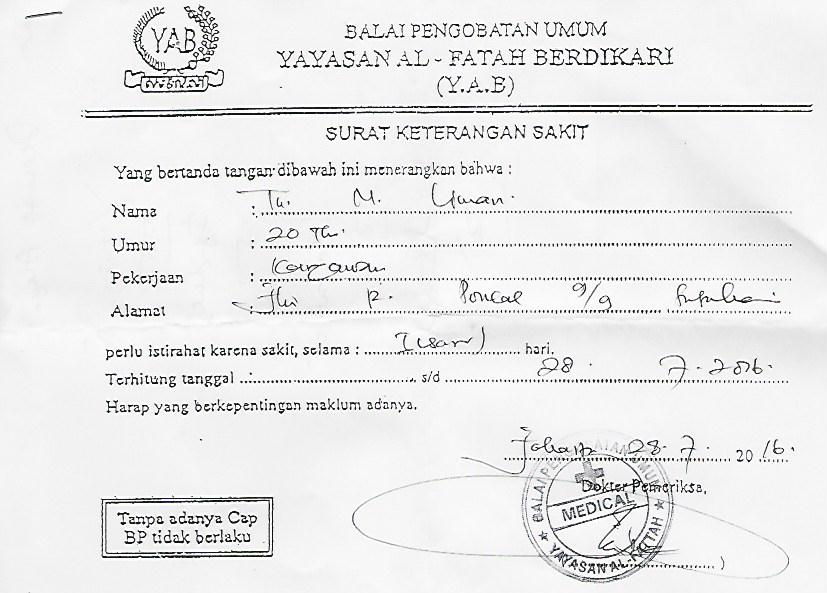 YAB
BALAI PENGOBATAN UMUM
YAYASAN AL - FATAH BERDIKARI
(Y.A.B)
SURAT KETERANGAN SAKIT
Yang bertanda tangan dibawah ini menerangkan bahwa :
Nama : Tn. M.
Umur : 20 Th.
Pekerjaan : Karyawan
Alamat : 9/9
perlu istirahat karena sakit, selama : I (satu) hari.
Terhitung tanggal : s/d 28 . 7 . 2016.
Harap yang berkepentingan maklum adanya.
Jakarta 28 . 7 . 2016.
Dokter Pemeriksa,
BALAI PENGOBATAN UMUM
MEDICAL
YAYASAN AL-FATAH
Tanpa adanya Cap
BP tidak berlaku